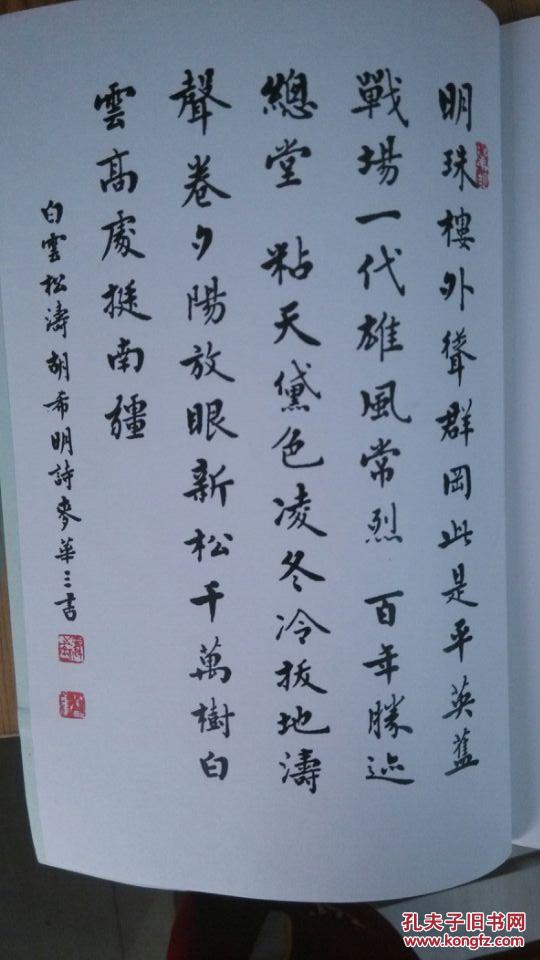 明珠樓外聳群岡此是平英舊
戰場一代雄風常烈 百年勝迹
總堂 粘天黛色凌冬冷拔地濤
聲卷夕陽放眼新松千萬樹白
雲高處挺南疆
白雲松濤胡希明詩麥華三書
孔夫子旧书网
www.kongfz.com